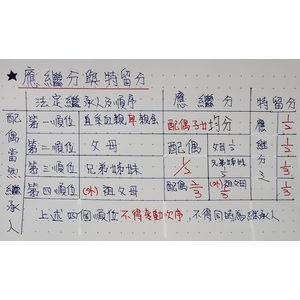 ★應繼分與特留分
法定繼承人及順序 應繼分 特留分
配偶當然繼承人
第一順位 直系血親卑親屬 配偶子女均分 應繼分之 1/2
第二順位 父母 配偶 父母 1/2 1/2
第三順位 兄弟姊妹 1/2 兄弟姊妹 1/2 1/3
第四順位 (外)祖父母 配偶 2/3 (外)祖父母 1/3 1/3
上述四個順位不得變動次序,不得同時為繼承人